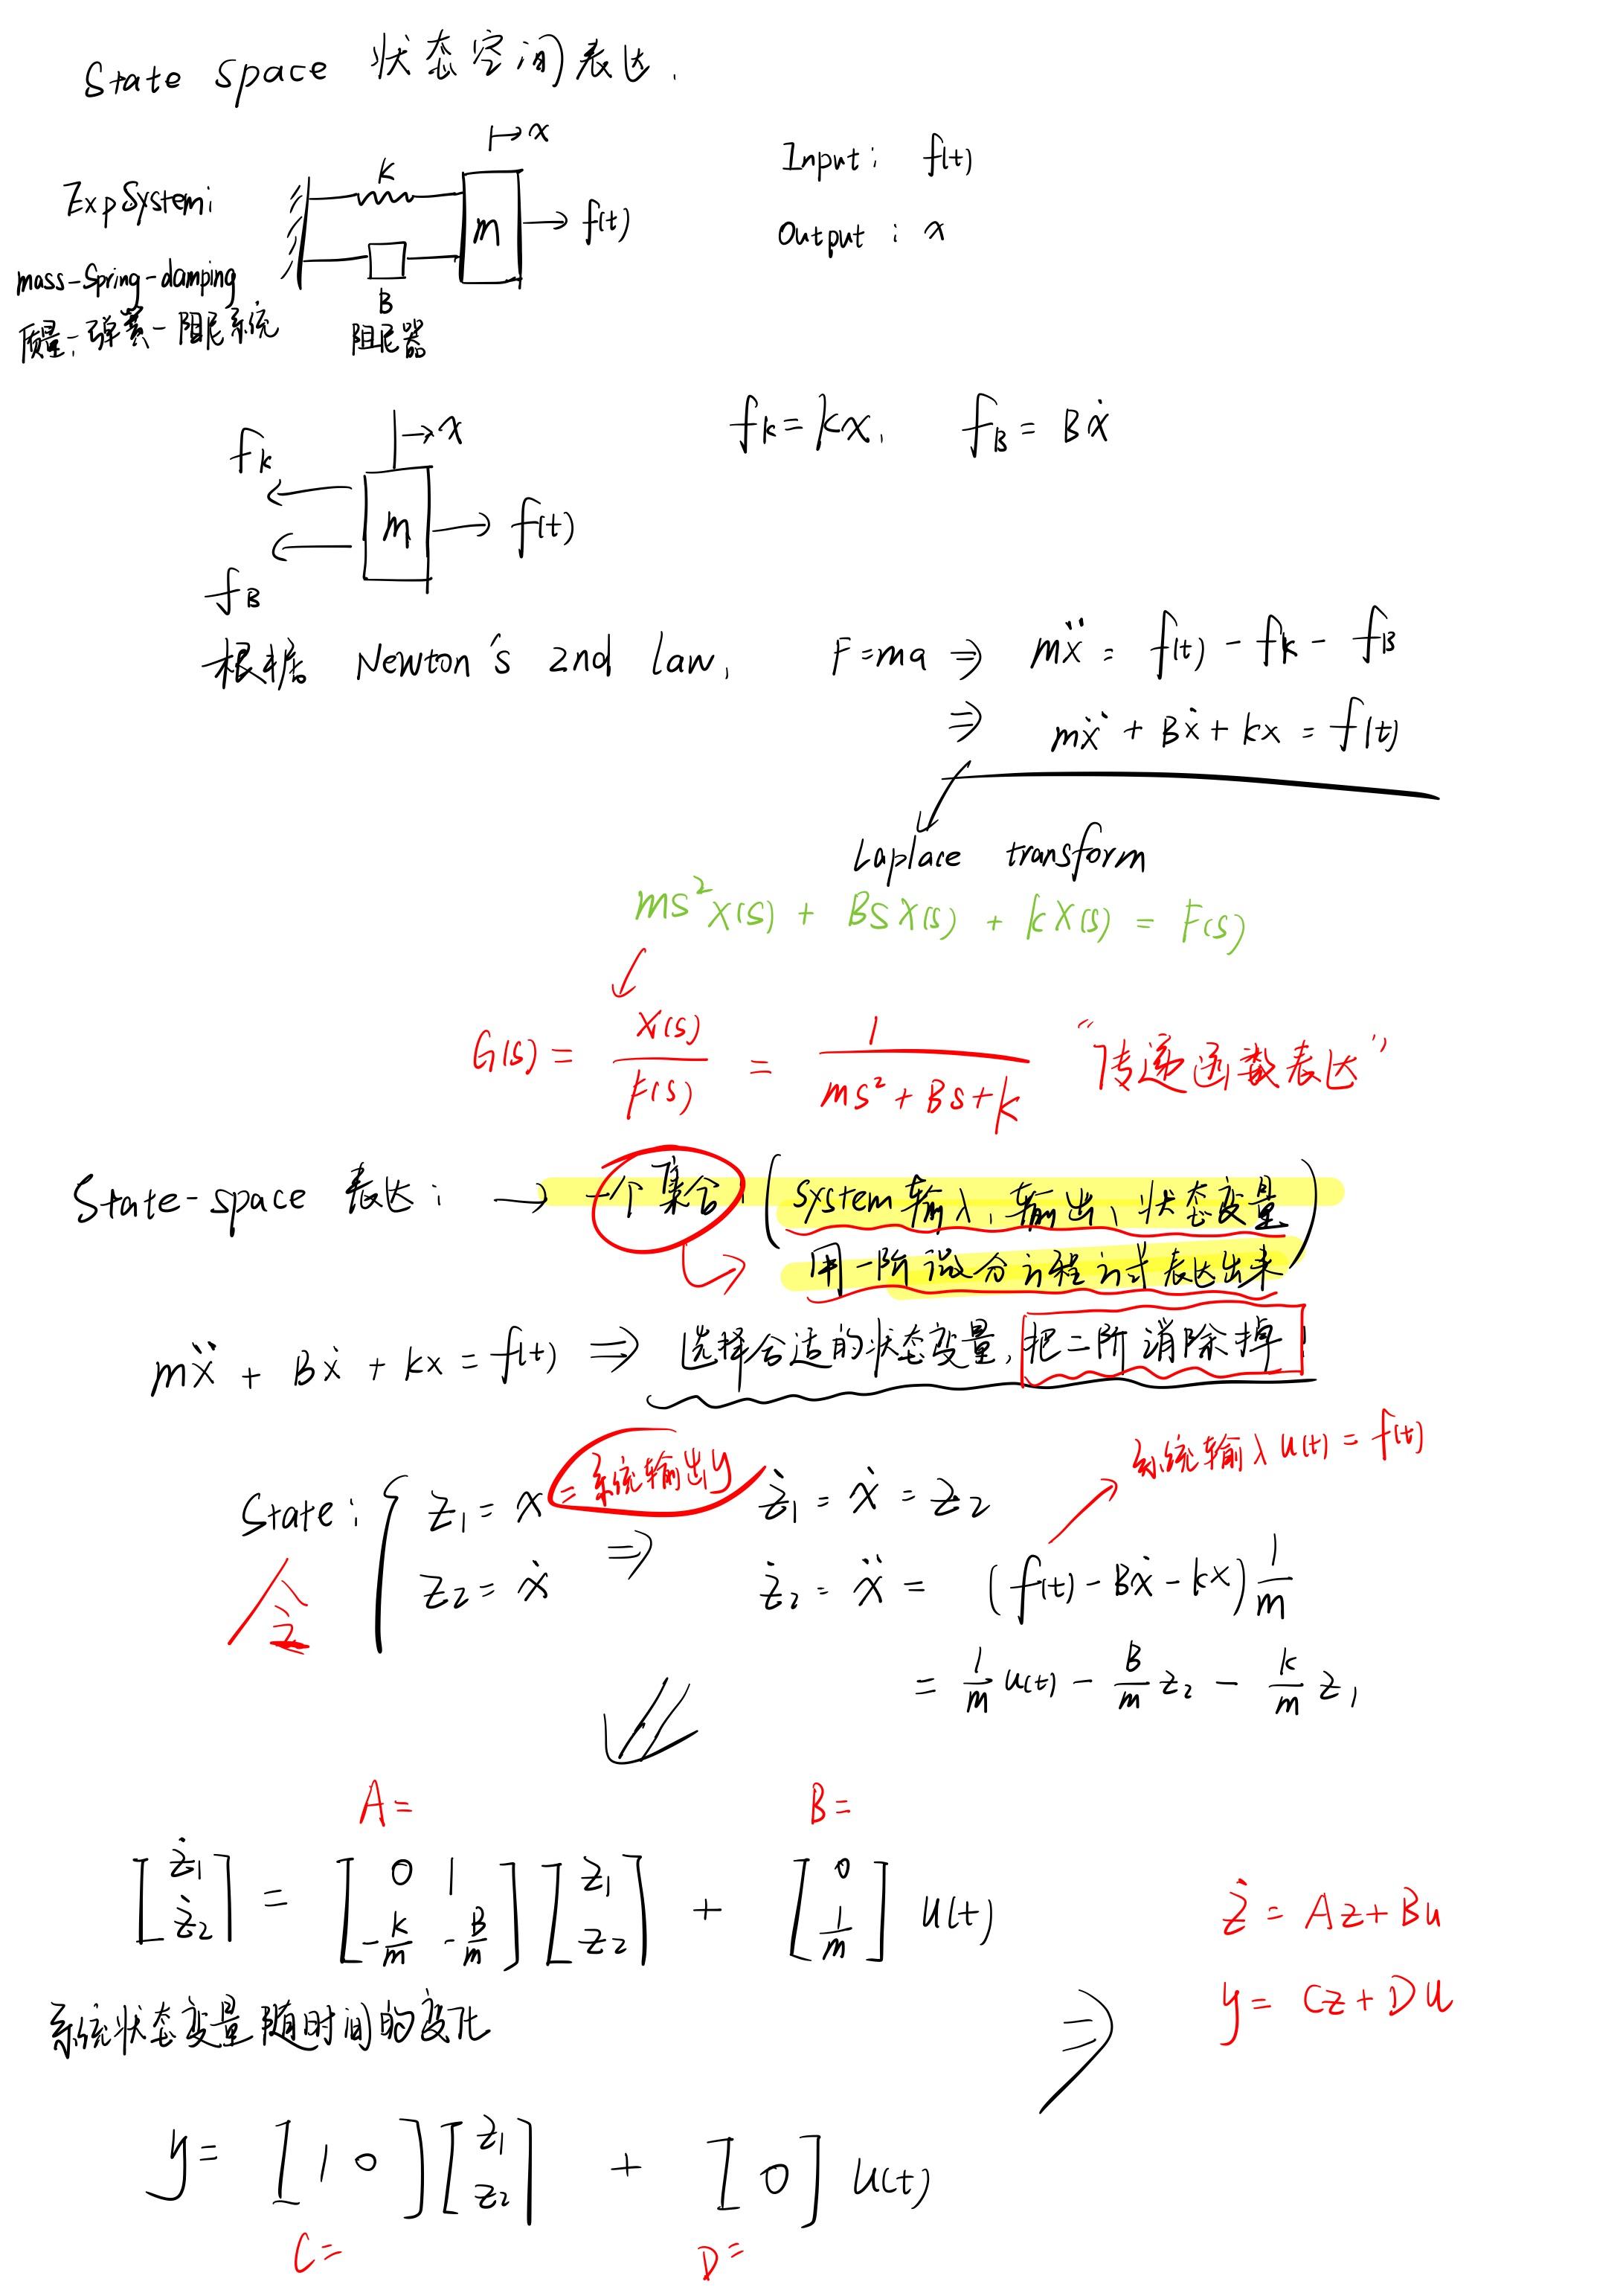 State space 状态空间表达.
Exp System:
mass-Spring-damping
质量-弹簧-阻尼系统
K
B
阻尼器
m
x
f(t)
Input: f(t)
Output: x
f_K
f_B
m
x
f(t)
f_k = kx, f_B = Bẋ
根据 Newton's 2nd law, F=ma ⇒ mẍ = f(t) - f_k - f_B
⇒ mẍ + Bẋ + kx = f(t)
Laplace transform
ms²X(s) + BsX(s) + kX(s) = F(s)
G(s) = X(s)/F(s) = 1/(ms² + Bs + k) "传递函数表达"
State-space 表达: → 一个集合: (system 输入, 输出, 状态变量
用一阶微分方程方式表达出来)
mẍ + Bẋ + kx = f(t) ⇒ 选择合适的状态变量, 把二阶消除掉!
系统输入 u(t) = f(t)
State: { z₁ = x = 系统输出y ⇒ ż₁ = ẋ = z₂
令 z₂ = ẋ ż₂ = ẍ = (f(t) - Bẋ - kx) 1/m
= 1/m u(t) - B/m z₂ - k/m z₁
A= B=
[ż₁ ; ż₂] = [0 1 ; -k/m -B/m] [z₁ ; z₂] + [0 ; 1/m] u(t)
系统状态变量随时间的变化
⇒ ż = Az + Bu
y = Cz + Du
y = [1 0] [z₁ ; z₂] + [0] u(t)
C= D=